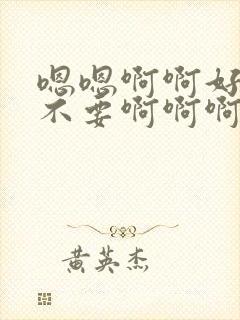 嗯嗯啊啊好
不要啊啊啊
黄英杰